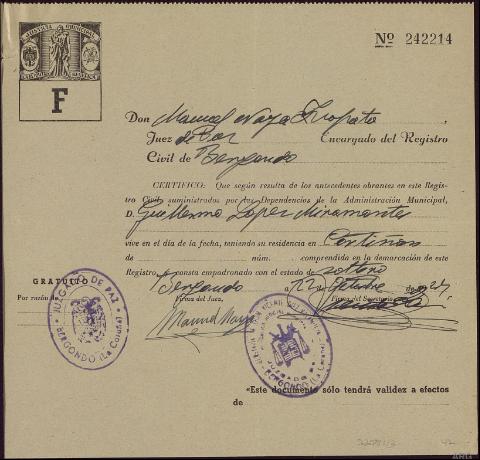 Nº 242214
F
Don Manuel Naya
Juez de Paz Encargado del Registro
Civil de Bergondo
CERTIFICO: Que según resulta de los antecedentes obrantes en este Regis-
tro Civil suministrados por las Dependencias de la Administración Municipal,
D. Guillermo López Miramontes
vive en el día de la fecha, teniendo su residencia en Cortiñán
de núm. comprendida en la demarcación de este
Registro, y consta empadronado con el estado de soltero
GRATUITO
Bergondo a de Octubre de
Por razón de
Firma del Juez,
Firma del Secretario
Manuel Naya
JUZGADO DE PAZ
BERGONDO (La Coruña)
BERGONDO (La Coruña)
«Este documento sólo tendrá validez a efectos
de